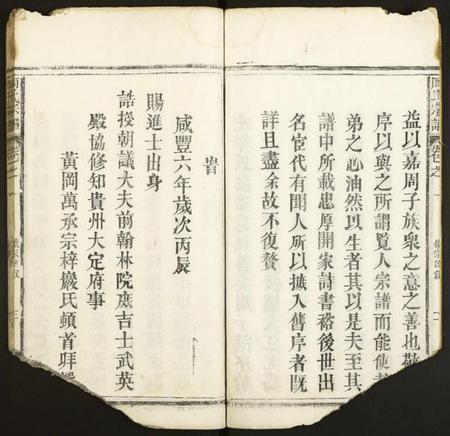 益以嘉周子族衆之意之善也敬
序以與之所謂覧人宗譜而能使
弟之心油然以生者其以是夫至其
譜中所載忠厚開家詩書裕後世出
名宦代有聞人所以摭入舊序者既
詳且盡余故不復贅
旹
咸豐六年歲次丙辰
賜進士出身
誥授朝議大夫前翰林院庶吉士武英
殿協修知貴州大定府事
黃岡萬承宗梓巖氏頓首拜